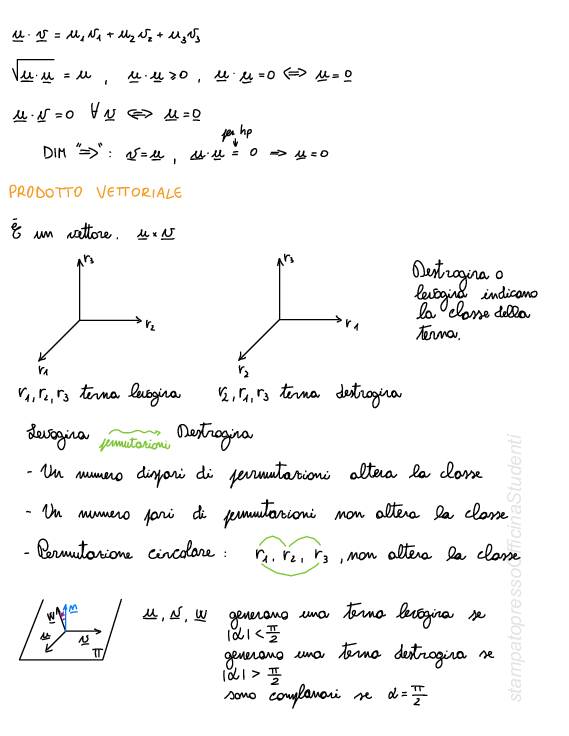 u · v = u₁v₁ + u₂v₂ + u₃v₃
√u·u = u , u · u ≥ 0 , u · u = 0 ⟺ u = 0
u · v = 0 ∀ v ⟺ u = 0
per hp
DIM "⇒" : v = u , u · u = 0 ⇒ u = 0
PRODOTTO VETTORIALE
È un vettore. u × v
r₃ r₂ r₁
r₃ r₁ r₂
Destrogira o
levogira indicano
la classe della
terna.
r₁, r₂, r₃ terna levogira
r₂, r₁, r₃ terna destrogira
Levogira permutazioni Destrogira
- Un numero dispari di permutazioni altera la classe
- Un numero pari di permutazioni non altera la classe
- Permutazione circolare : r₁, r₂, r₃ , non altera la classe
w n
u v π
u, v, w generano una terna levogira se
|α| < π/2
generano una terna destrogira se
|α| > π/2
sono complanari se α = π/2
stampatopressoOfficinaStudenti